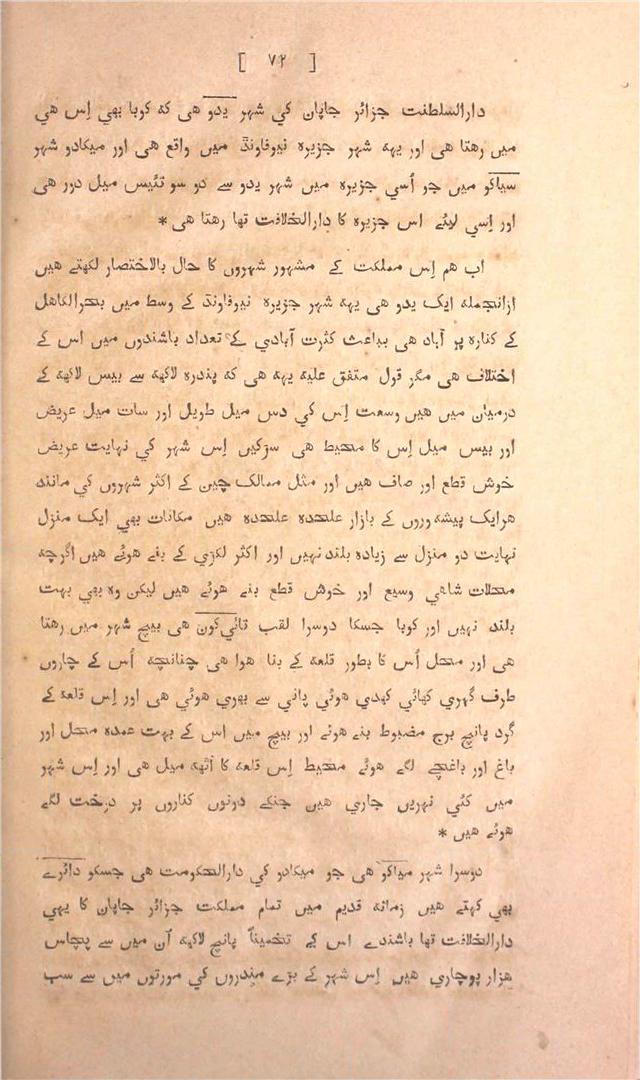 [ ۷۲ ]
دارالسلطنت جزائر جاپان کي شہر یدو ھی کہ کوبا بھي اِس ھی
میں رھتا ھی اور یہہ شہر جزیرہ نیوفاونڈ میں واقع ھی اور میکادو شہر
سیاکو میں جو اُسي جزیرہ میں شہر یدو سے دو سو تئیس میل دور ھی
اور اِسي لائے اس جزیرہ کا دارالخلافت تھا رھتا ھی *
اب ھم اِس مملکت کے مشہور شہروں کا حال بالاختصار لکھتے ھیں
ازانجملہ ایک یدو ھی یہہ شہر جزیرہ نیوفاونڈ کے وسط میں بحرالکاھل
کے کنارہ پر آباد ھی بباعث کثرت آبادي کے تعداد باشندوں میں اس کے
اختلاف ھی مگر قول متفق علیہ یہہ ھی کہ پندرہ لاکھہ سے بیس لاکھہ کے
درمیان میں ھیں وسعت اِس کي دس میل طویل اور سات میل عریض
اور بیس میل اِس کا محیط ھی سڑکیں اِس شہر کي نہایت عریض
خوش قطع اور صاف ھیں اور مثل ممالک چین کے اکثر شہروں کي مانند
ھرایک پیشہ وروں کے بازار علحدہ علحدہ ھیں مکانات بھي ایک منزل
نہایت دو منزل سے زیادہ بلند نہیں اور اکثر لکڑي کے بنے ھوئے ھیں اگرچہ
محلات شاھي وسیع اور خوش قطع بنے ھوئے ھیں لیکن وہ بھي بہت
بلند نہیں اور کوبا جسکا دوسرا لقب تائي کون ھی بیچ شہر میں رھتا
ھی اور محل اُس کا بطور قلعہ کے بنا ھوا ھی چنانچہ اُس کے چاروں
طرف گہري کھائي کھدي ھوئي پاني سے بھري ھوئي ھی اور اِس قلعہ کے
گرد پانچ برج مضبوط بنے ھوئے اور بیچ میں اس کے بہت عمدہ محل اور
باغ اور باغچے لگے ھوئے محیط اِس قلعہ کا آٹھہ میل ھی اور اِس شہر
میں کئي نہریں جاري ھیں جنکے دونوں کناروں پر درخت لگے
ھوئے ھیں *
دوسرا شہر میاکو ھی جو میکادو کي دارالحکومت ھی جسکو دائرے
بھي کہتے ھیں زمانہ قدیم میں تمام مملکت جزائر جاپان کا یہي
دارالخلافت تھا باشندے اس کے تخمیناً پانچ لاکھہ اُن میں سے پچاس
ھزار پوچاري ھیں اِس شہر کے بڑے مندروں کي مورتوں میں سے سب